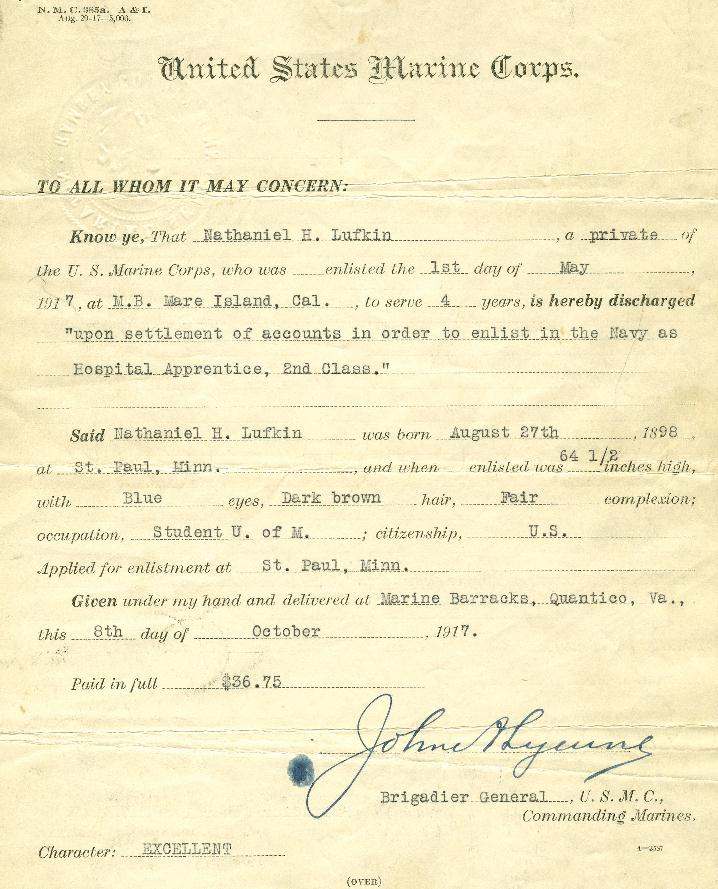 N. M. C. 385a. A & I.
Aug. 29-17—5,000.
United States Marine Corps.
TO ALL WHOM IT MAY CONCERN:
Know ye, That Nathaniel H. Lufkin, a private of
the U. S. Marine Corps, who was enlisted the 1st day of May,
1917, at M.B. Mare Island, Cal., to serve 4 years, is hereby discharged
"upon settlement of accounts in order to enlist in the Navy as
Hospital Apprentice, 2nd Class."
Said Nathaniel H. Lufkin was born August 27th, 1898,
at St. Paul, Minn., and when enlisted was 64 1/2 inches high,
with Blue eyes, Dark brown hair, Fair complexion;
occupation, Student U. of M.; citizenship, U.S.
Applied for enlistment at St. Paul, Minn.
Given under my hand and delivered at Marine Barracks, Quantico, Va.,
this 8th day of October, 1917.
Paid in full $36.75
Brigadier General, U. S. M. C.,
Commanding Marines.
Character: EXCELLENT
(OVER)